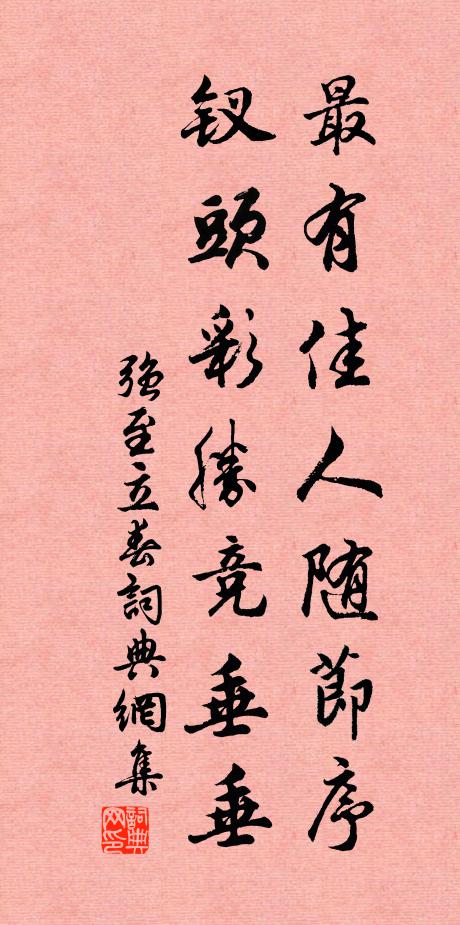 最有佳人随節序
钗頭彩勝竞垂垂
強至立春詞典網集
詞典网印